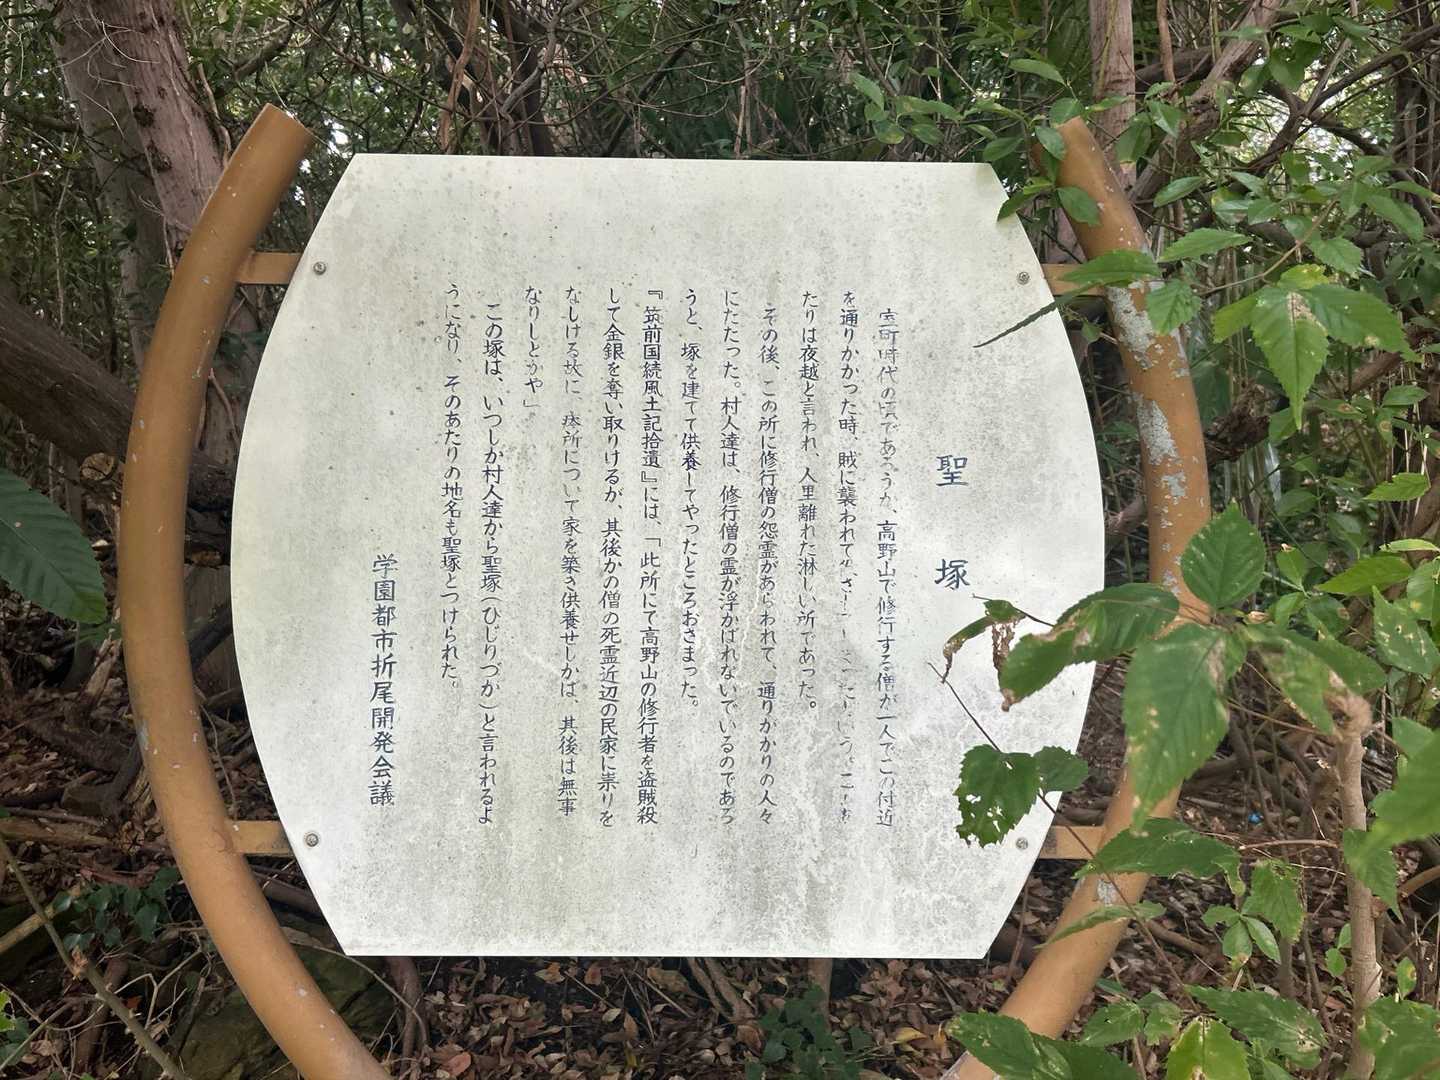 聖塚
室町時代の頃であろうか、高野山で修行する僧が一人でこの付近
を通りかかった時、賊に襲われて
たりは夜越と言われ、人里離れた淋しい所であった。
その後、この所に修行僧の怨霊があらわれて、通りかかりの人々
にたたった。村人達は、修行僧の霊が浮かばれないでいるのであろ
うと、塚を建てて供養してやったところおさまった。
『筑前国続風土記拾遺』には、「此所にて高野山の修行者を盗賊殺
して金銀を奪い取りけるが、其後かの僧の死霊近辺の民家に祟りを
なしける故に、此所について家を築き供養せしかば、其後は無事
なりしとかや」
この塚は、いつしか村人達から聖塚（ひじりづか）と言われるよ
うになり、そのあたりの地名も聖塚とつけられた。
学園都市折尾開発会議